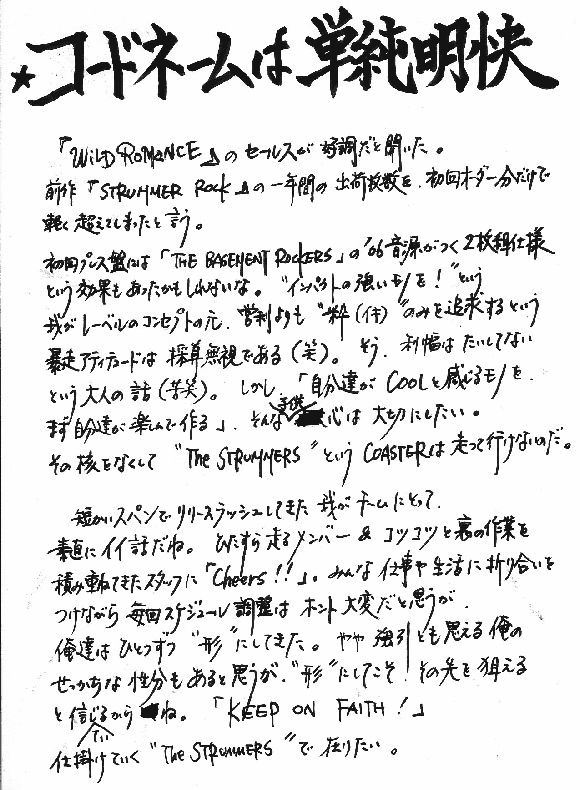 ★コードネームは単純明快
「WILD ROMANCE」のセールスが好調だと聞いた。
前作「STRUMMER ROCK」の一年間の出荷枚数を、初回オーダー分だけで
軽く超えてしまったと言う。
初回プレス盤には「THE BASEMENT ROCKERS」の'06音源がつく2枚組仕様
という効果もあったかもしれないな。"インパクトの強いモノを!"という
我がレーベルのコンセプトの元、営利よりも"粋(イキ)"のみを追求するという
暴走アティチュードは採算無視である(笑)。そう、利幅はたいしてない
という大人の話(苦笑)。しかし、「自分達がCOOLと感じるモノを、
まず自分達が楽しんで作る」、そんな子供心は大切にしたい。
その核をなくして"The STRUMMERS"というCOASTERは走って行けないのだ。
短かいスパンでリリースラッシュしてきた我がチームにとって、
素直にイイ話だね。ひたすら走るメンバー&コツコツと裏の作業を
積み重ねてきたスタッフに「Cheers!!」。みんな仕事や生活に折り合いを
つけながら毎回スケジュール調整はホント大変だと思うが、
俺達はひとつずつ"形"にしてきた。やや強引とも思える俺の
せっかちな性分もあると思うが、"形"にしてこそ、その先を狙える
と信じているからね。「KEEP ON FAITH!」
仕掛けていく"The STRUMMERS"で在りたい。